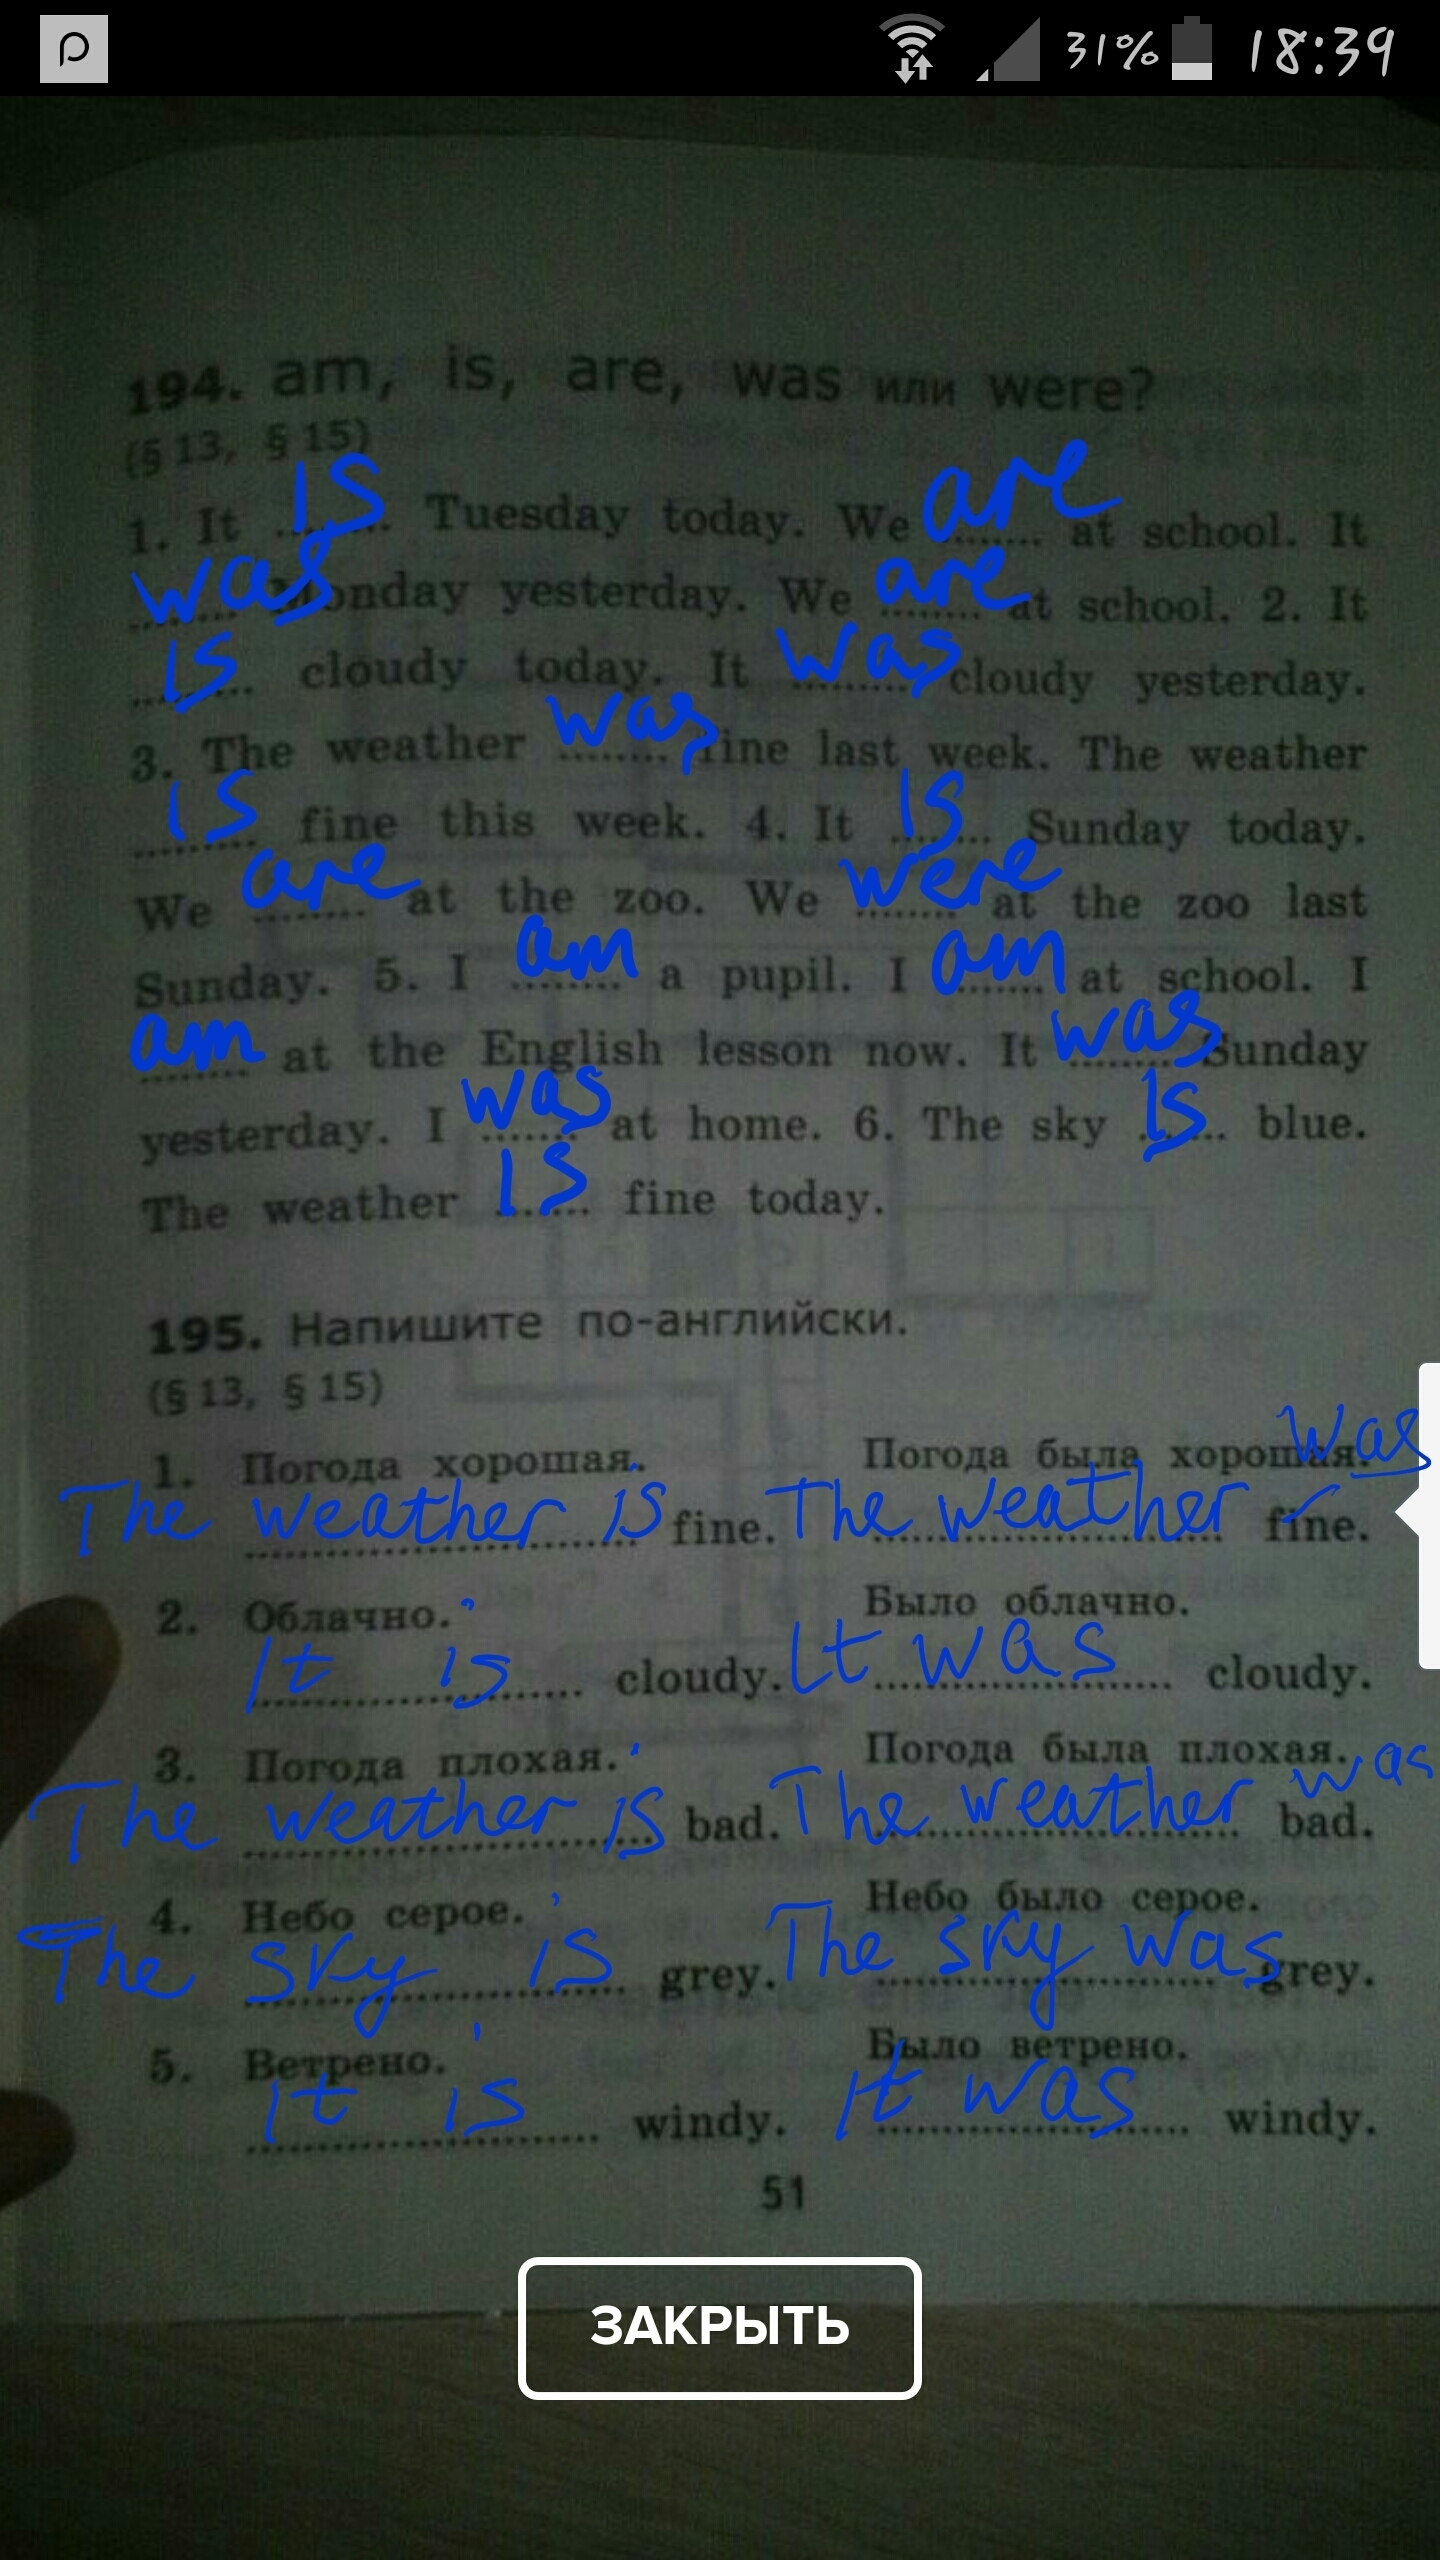 31% 18:39
194. am, is, are, was или were?
(§ 13, § 15)
1. It is Tuesday today. We are at school. It
was Monday yesterday. We are at school. 2. It
is cloudy today. It was cloudy yesterday.
3. The weather was fine last week. The weather
is fine this week. 4. It is Sunday today.
We are at the zoo. We were at the zoo last
Sunday. 5. I am a pupil. I am at school. I
am at the English lesson now. It was Sunday
yesterday. I was at home. 6. The sky is blue.
The weather is fine today.
195. Напишите по-английски.
(§ 13, § 15)
1. Погода хорошая. Погода была хорошая.
The weather is fine. The weather was fine.
2. Облачно. Было облачно.
It is cloudy. It was cloudy.
3. Погода плохая. Погода была плохая.
The weather is bad. The weather was bad.
4. Небо серое. Небо было серое.
The sky is grey. The sky was grey.
5. Ветрено. Было ветрено.
It is windy. It was windy.
51
ЗАКРЫТЬ